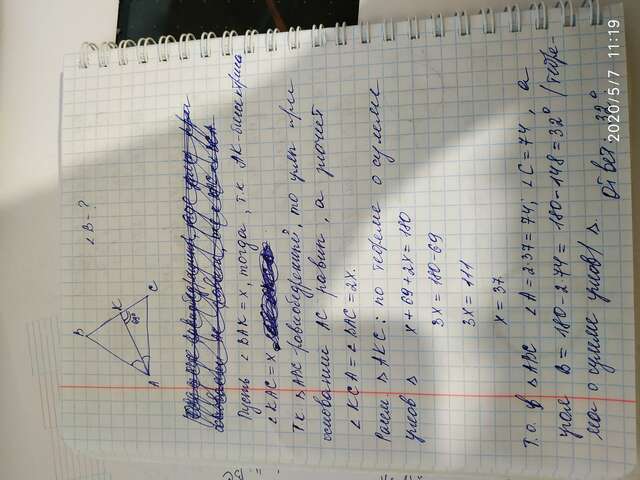 ∠B-?
B
K
69°
A
C
Пусть ∠BAK = x, тогда, т.к. AK-биссектриса
∠KAC = x
Т.к. △ABC равнобедренный, то углы при
основании AC равны, а значит
∠KCA = ∠BAC = 2x.
Рассм. △AKC: по теореме о сумме
углов △ x + 69 + 2x = 180
3x = 180-69
3x = 111
x = 37.
Т.о. в △ABC ∠A = 2·37 = 74; ∠C = 74, а
угол B = 180-2·74 = 180-148 = 32° (теоре-
ма о сумме углов) △.
Ответ 32°
2020/5/7 11:19